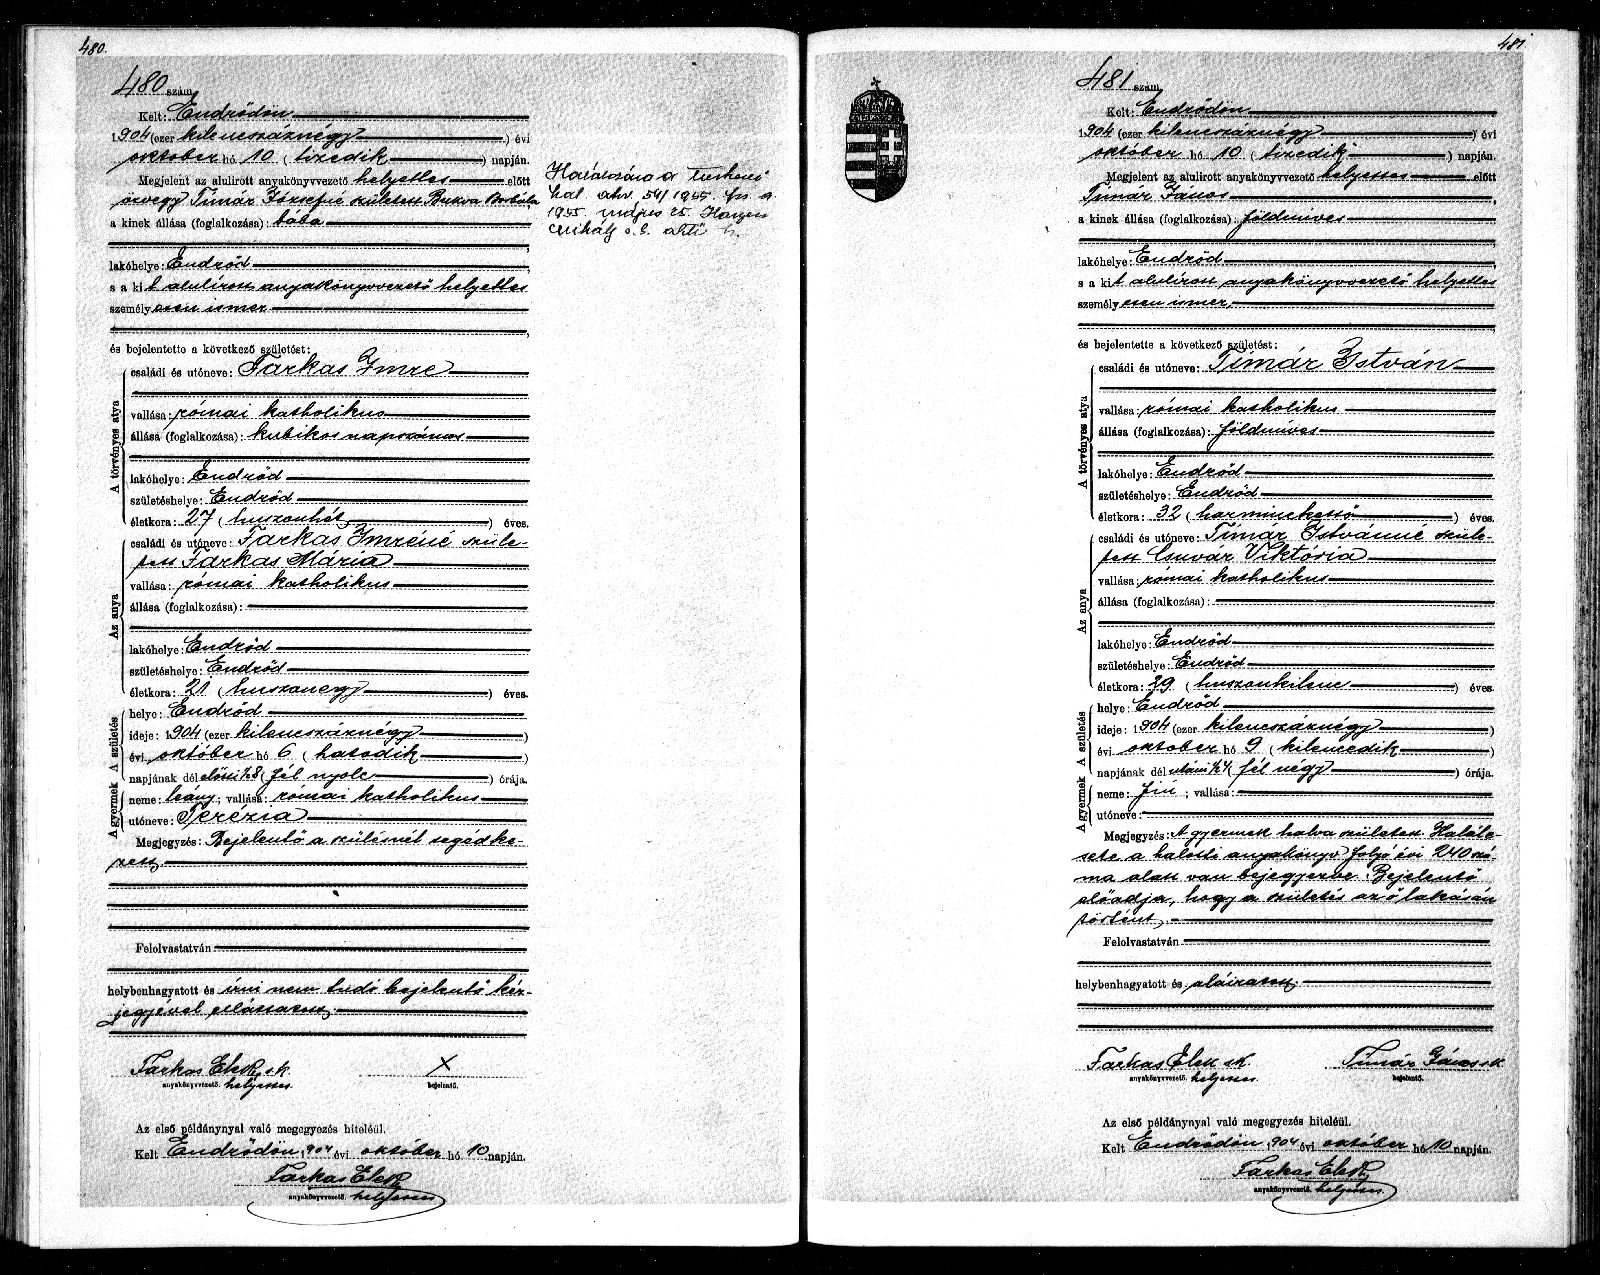 480.
480 szám.
Kelt: Endrődön
1904 (ezer kilencszáznégy) évi
október hó 10 (tizedik) napján.
Megjelent az alulirott anyakönyvvezető helyettes előtt
özvegy Tímár Józsefné született Bukva Borbála
a kinek állása (foglalkozása): bába
lakóhelye: Endrőd
s a kit alulírott anyakönyvvezető helyettes
személyesen ismer
és bejelentette a következő születést:
A törvényes atya
családi és utóneve: Farkas Imre
vallása: római katholikus
állása (foglalkozása): kubikos napszámos
lakóhelye: Endrőd
születéshelye: Endrőd
életkora: 27 (huszonhét) éves.
Az anya
családi és utóneve: Farkas Imréné szüle-
tett Farkas Mária
vallása: római katholikus
állása (foglalkozása):
lakóhelye: Endrőd
születéshelye: Endrőd
életkora: 21 (huszonegy) éves.
A születés
helye: Endrőd
ideje: 1904 (ezer kilencszáznégy)
évi október hó 6 (hatodik)
napjának dél előtti ½8 (fél nyolc) órája.
A gyermek
neme: leány; vallása: római katholikus
utóneve: Terézia
Megjegyzés: Bejelentő a szülésnél segédke-
zett.
Felolvastatván
helybenhagyatott és írni nem tudó bejelentő kéz-
jegyével elláttatott.
Farkas Elek s.k. X
anyakönyvvezető. helyettes bejelentő.
Az első példánynyal való megegyezés hiteléül.
Kelt Endrődön, 1904 évi október hó 10 napján.
Farkas Elek
anyakönyvvezető. helyettes
1955. május 25.
481.
481 szám.
Kelt: Endrődön
1904 (ezer kilencszáznégy) évi
október hó 10 (tizedik) napján.
Megjelent az alulirott anyakönyvvezető helyettes előtt
Tímár János
a kinek állása (foglalkozása): földmíves
lakóhelye: Endrőd
s a kit alulírott anyakönyvvezető helyettes
személyesen ismer,
és bejelentette a következő születést:
A törvényes atya
családi és utóneve: Tímár István
vallása: római katholikus
állása (foglalkozása): földmíves
lakóhelye: Endrőd
születéshelye: Endrőd
életkora: 32 (harminckettő) éves.
Az anya
családi és utóneve: Tímár Istvánné szüle-
tett Csuvár Viktória
vallása: római katholikus
állása (foglalkozása):
lakóhelye: Endrőd
születéshelye: Endrőd
életkora: 29 (huszonkilenc) éves.
A születés
helye: Endrőd
ideje: 1904 (ezer kilencszáznégy)
évi október hó 9 (kilencedik)
napjának dél utáni ½4 (fél négy) órája.
A gyermek
neme: fiú; vallása:
utóneve:
Megjegyzés: A gyermek halva született. Halál-
esete a halotti anyakönyv folyó évi 240 szá-
ma alatt van bejegyezve. Bejelentő
előadja, hogy a születés az ő lakásán
történt.
Felolvastatván
helybenhagyatott és aláíratott.
Farkas Elek sk. Tímár János sk.
anyakönyvvezető. helyettes bejelentő.
Az első példánynyal való megegyezés hiteléül.
Kelt Endrődön, 1904 évi október hó 10 napján.
Farkas Elek
anyakönyvvezető. helyettes